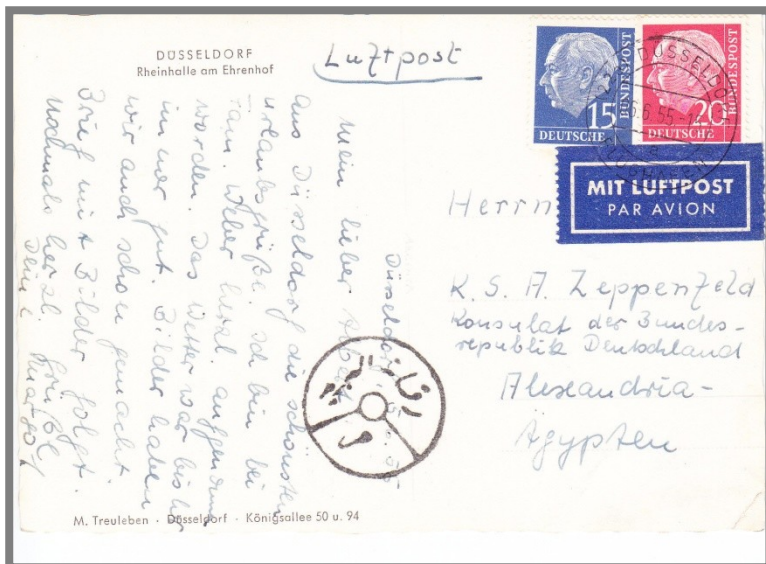 DÜSSELDORF
Rheinhalle am Ehrenhof
Luftpost
15
DEUTSCHE
BUNDESPOST
20
DEUTSCHE
BUNDESPOST
DÜSSELDO
6.55-1
MIT LUFTPOST
PAR AVION
Herrn
K. S. A. Zeppenfeld
Konsulat der Bundes-
republik Deutschland
Alexandria-
Ägypten
Mein lieber
aus Düsseldorf die schönsten
Urlaubsgrüße. Ich bin bei
Fam. Weber herzl.
worden. Das Wetter war bisher
immer gut. Bilder haben
wir auch schon gemacht
Brief mit Bilder folgt.
Nochmals herzl. Grüße
Deine Margot
M. Treuleben · Düsseldorf · Königsallee 50 u. 94